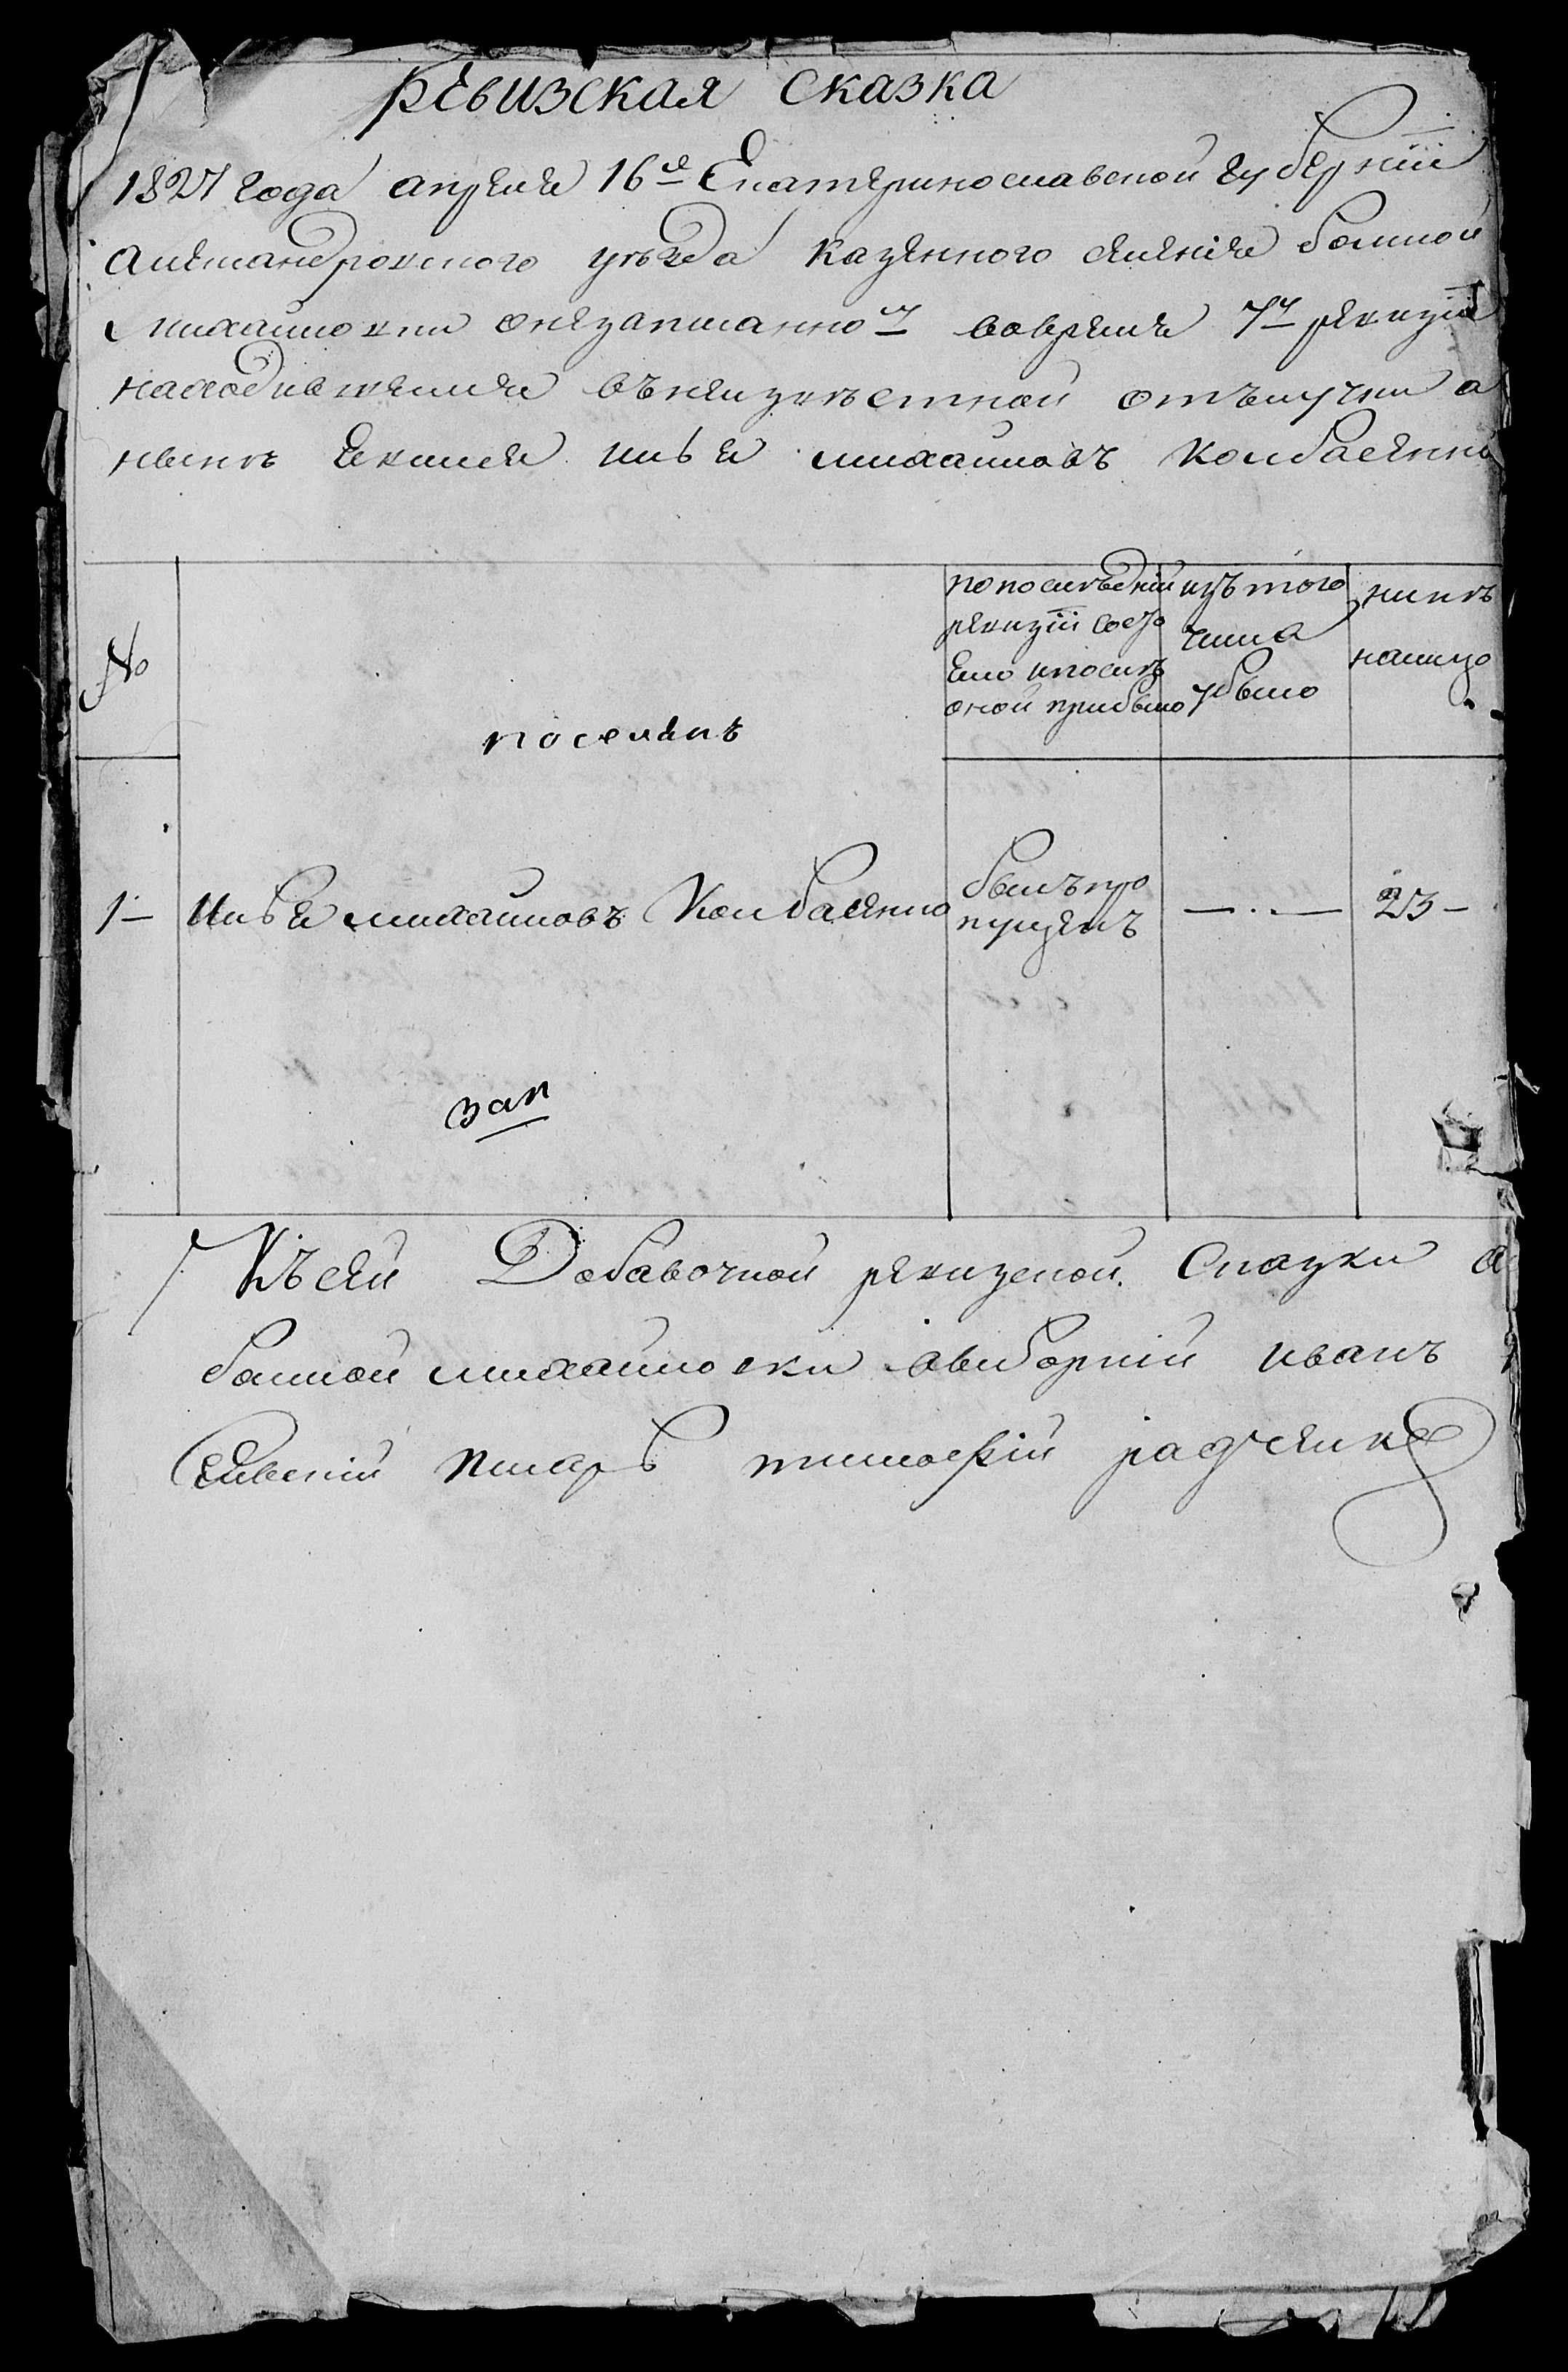 Ревизская сказка
1827 года апреля 16го Екатеринославской губернiи
Александровского уѣзда казенного селенiя болшой
михайловки онезаписанном вовремя 7й ревизiи
находившемся въ неизвѣстной отълучки а
нынѣ явился илья михайловъ Колбасенко
№
поселянъ
попослѣдней ревизiи состо
яло ипослѣ оной прибыло
изъ того числа убыло
нинѣ налицо
1 – Илья михайловъ Колбасенко
былъ про
пущенъ
— . . —
23 –
зап
Къ сей Добавочной ревизской Сказки
болшой михайловки выборнiй иванъ
Селскiй писаръ тимофiй радченко